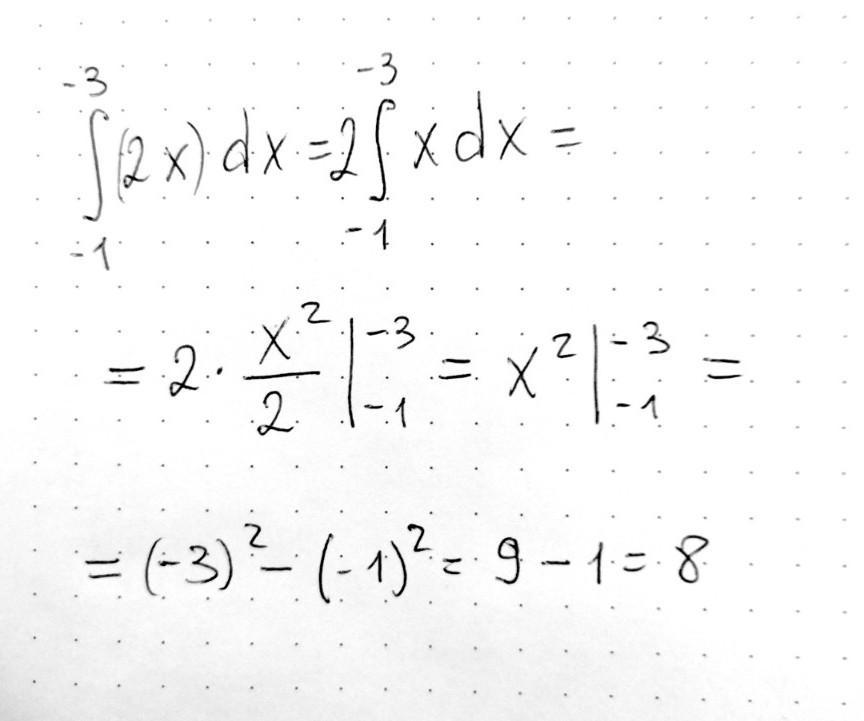 ∫_{-1}^{-3} (2x) dx = 2∫_{-1}^{-3} x dx =
= 2 · x²/2 |_{-1}^{-3} = x² |_{-1}^{-3} =
= (-3)² - (-1)² = 9 - 1 = 8